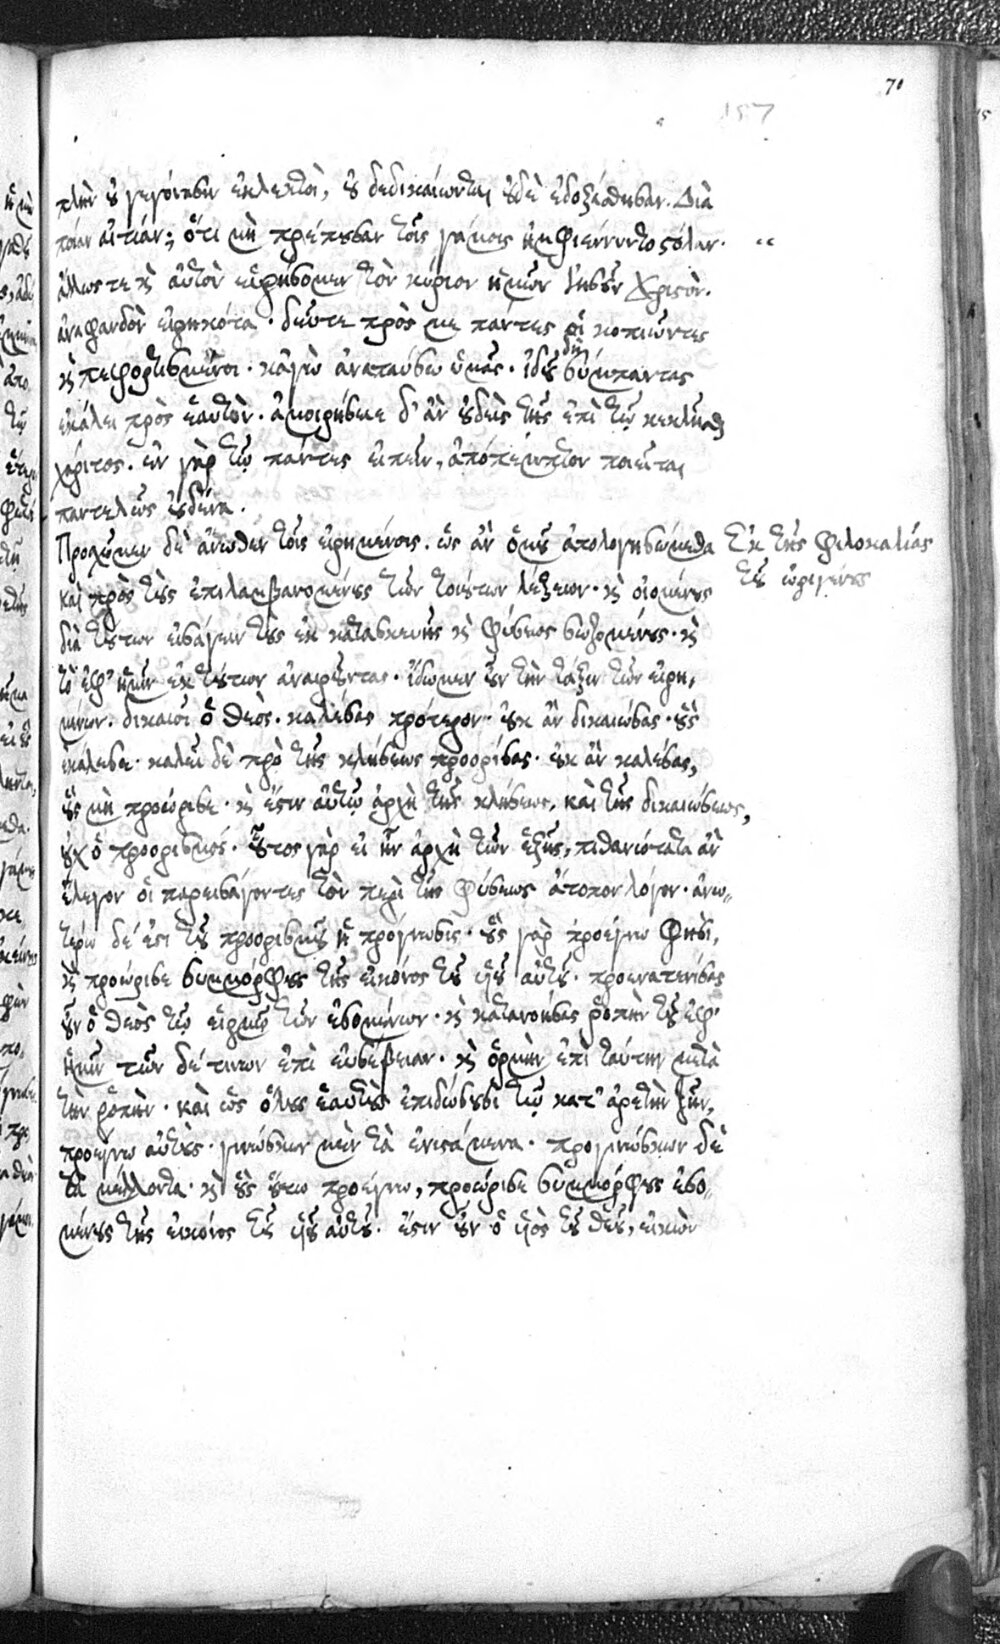 71
157
πλὴν οὐ γεγόνασιν ἐκλεκτοὶ, οὐ δεδικαίωνται οὐδὲ ἐδοξάσθησαν. Διὰ
ποίαν αἰτίαν; ὅτι μὴ πρέπουσαν τοῖς γάμοις ἠμφιέννυντο στόλην.
ἄλλως τε καὶ αὐτὸν εὑρήσομεν τὸν κύριον ἡμῶν Ἰησοῦν Χριστὸν.
ἀναφανδὸν εἰρηκότα. δεῦτε πρὸς με πάντες οἱ κοπιῶντες
καὶ πεφορτισμένοι. κἀγὼ ἀναπαύσω ὑμᾶς. ἰδοὺ δὴ σύμπαντας
ἐκάλει πρὸς ἑαυτὸν. ἀμοιρήσειε δ' ἂν οὐδεὶς τῆς ἐπὶ τῷ κεκλῆσθαι
χάριτος. ἐν γὰρ τῷ πάντες εἰπεῖν, ἀπόπεμπτον ποιεῖται
παντελῶς οὐδένα.
Πρόσχωμεν δὲ ἄνωθεν τοῖς εἰρημένοις. ὡς ἂν ὁμοῦ ἀπολογησώμεθα
Ἐκ τῆς Φιλοκαλίας
τοῦ ὠριγένους
καὶ πρὸς τοὺς ἐπιλαμβανομένους τῶν τοιούτων λέξεων. καὶ οἰομένους
διὰ τούτων εἰσάγειν τοὺς ἐκ κατασκευῆς καὶ φύσεως σωζομένους. καὶ
τὸ ἐφ' ἡμῖν ἐκ τούτων ἀναιροῦντας. ἴδωμεν οὖν τὴν τάξιν τῶν εἰρη,
μένων. δικαιοῖ ὁ θεὸς. καλέσας πρότερον. οὐκ ἂν δικαιώσας. οὓς
ἐκάλεσε. καλεῖ δὲ πρὸ τῆς κλήσεως προορίσας. οὐκ ἂν καλέσας,
οὓς μὴ προώρισε. καὶ ἔστιν αὐτῷ ἀρχὴ τῆς κλήσεως, καὶ τῆς δικαιώσεως,
οὐχ ὁ προορισμός. οὗτος γὰρ εἰ ἦν ἀρχὴ τῶν ἑξῆς, πιθανώτατα ἂν
ἔλεγον οἱ παρεισάγοντες τὸν περὶ τῆς φύσεως ἄτοπον λόγον. ἀνω-
τέρω δέ ἐστι τοῦ προορισμοῦ ἡ πρόγνωσις. οὓς γὰρ προέγνω φησὶ,
καὶ προώρισε συμμόρφους τῆς εἰκόνος τοῦ υἱοῦ αὐτοῦ. προενατενίσας
οὖν ὁ θεὸς τῷ εἱρμῷ τῶν ἐσομένων. καὶ κατανοήσας ῥοπὴν τοῦ ἐφ'
ἡμῖν τῶν δέ τινων ἐπὶ εὐσέβειαν. καὶ ὁρμὴν ἐπὶ ταύτην μετὰ
τὴν ῥοπὴν. καὶ ὡς ὅλους ἑαυτοὺς ἐπιδώσουσι τῷ κατ' ἀρετὴν ζῆν,
προέγνω αὐτοὺς. γινώσκων μὲν τὰ ἐνιστάμενα. προγινώσκων δὲ
τὰ μέλλοντα. καὶ οὓς οὕτω προέγνω, προώρισε συμμόρφους ἐσο-
μένους τῆς εἰκόνος τοῦ υἱοῦ αὐτοῦ. ἔστιν οὖν ὁ υἱὸς τοῦ θεοῦ, εἰκὼν